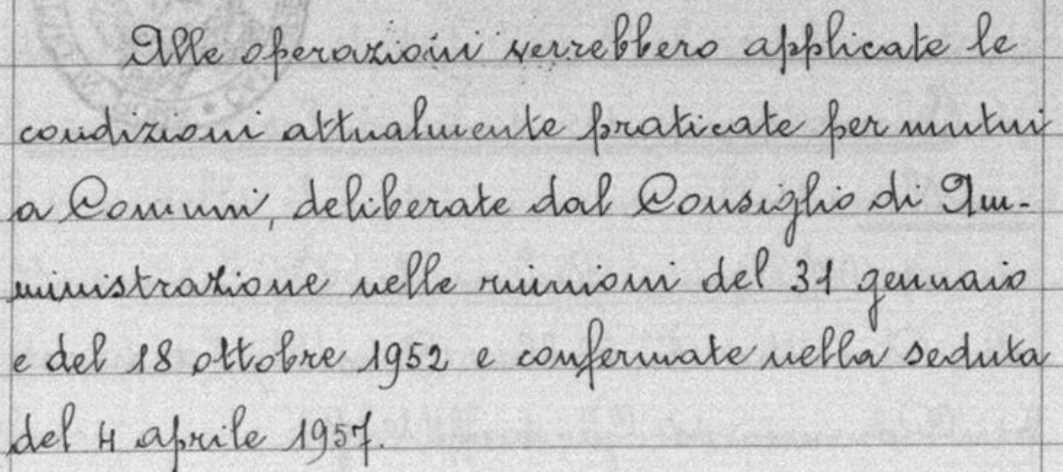 Alle operazioni verrebbero applicate le
condizioni attualmente praticate per mutui
a Comuni, deliberate dal Consiglio di Am-
ministrazione nelle riunioni del 31 gennaio
e del 18 ottobre 1952 e confermate nella seduta
del 4 aprile 1957.